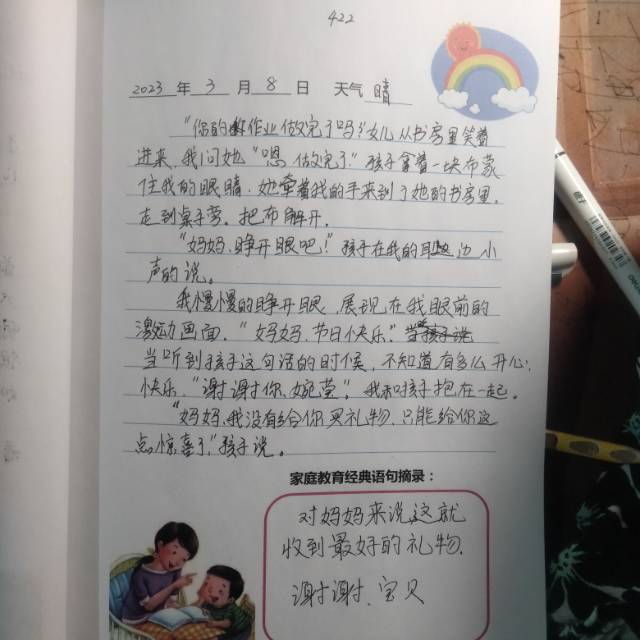 422
2023 年 3 月 8 日 天气 晴
"你的作业做完了吗?"女儿从书房里笑着
进来,我问她"嗯,做完了"孩子拿着一块布蒙
住我的眼睛,她牵着我的手来到了她的书房里,
走到桌子旁,把布解开.
"妈妈,睁开眼吧!"孩子在我的耳边小
声的说。
我慢慢的睁开眼,展现在我眼前的
激动画面,"妈妈,节日快乐,"
当听到孩子这句话的时候,不知道有多么开心,
快乐,"谢谢你,婉莹"。我和孩子抱在一起。
"妈妈,我没有给你买礼物,只能给你这
点惊喜了,"孩子说。
家庭教育经典语句摘录:
对妈妈来说,这就
收到最好的礼物.
谢谢,宝贝